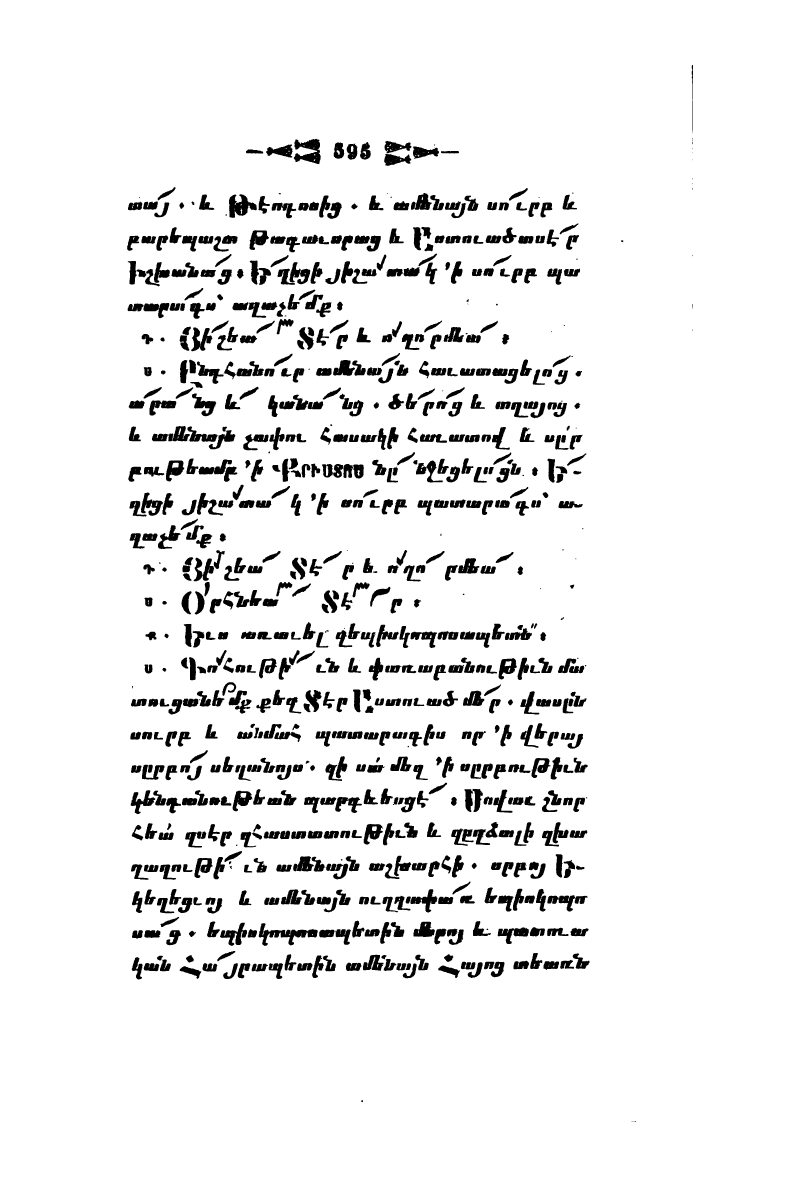 595
տա՜յ . և Թէոդոսից . և ամենայն սո՜ւրբ և
բարեպաշտ Թագաւորաց և Աստուածասէ՜ր
իշխանա՜ց : Եղիցի յիշատա՜կ ՚ի սո՜ւրբ պա
տարա՜գս՝ աղաչե՜մք :
Դ . Յիշեա՜ Տէ՜ր և ո՜ղո՜րմեա՜ :
Ս . Ընդհանո՜ւր ամենա՜յն հաւատացելո՜ց .
ա՜րա՜նց և՜ կանա՜նց . ծե՜րո՜ց և տղայոց .
և ամենայն չափու հասակի հաւատով և սր՜ր
բութեամբ ՚ի ՔՐԻՍՏՈՍ նը՜նջեցելո՜ցն : Ե՜-
ղիցի յիշա՜տա՜կ ՚ի սո՜ւրբ պատարա՜գս՝ ա-
ղաչե՜մք :
Դ . Յի՜շեա՜ Տէ՜ր և ո՜ղո՜րմեա՜ :
Ս . Օ՜րհնեա՜ Տէ՜ր :
Ք . Եւս առաւել զեպիսկոպոսապետն՝ :
Ս . Գո՜հութի՜ւն և փառաբանութիւն մա
տուցանե՜մք քեզ Տէր Աստուած մե՜ր . վասըն
սուրբ և անմահ պատարագիս որ ՚ի վերայ
սըրբո՜յ սեղանոյս . զի սա մեզ ՚ի սըրբութիւն
կենդանութեան պարգևեսցէ՜ : Սովաւ շնոր
հեա՛ զսէր զհաստատութիւն և զըղձալի զխա
ղաղութի՜ւն ամենայն աշխարհի . սրբոյ Ե-
կեղեցւոյ և ամենայն ուղղափա՜ռ եպիսկոպո
սա՜ց . եպիսկոպոսապետին մերոյ և պատուա
կան Հա՜յրապետին ամենայն Հայոց տեառն